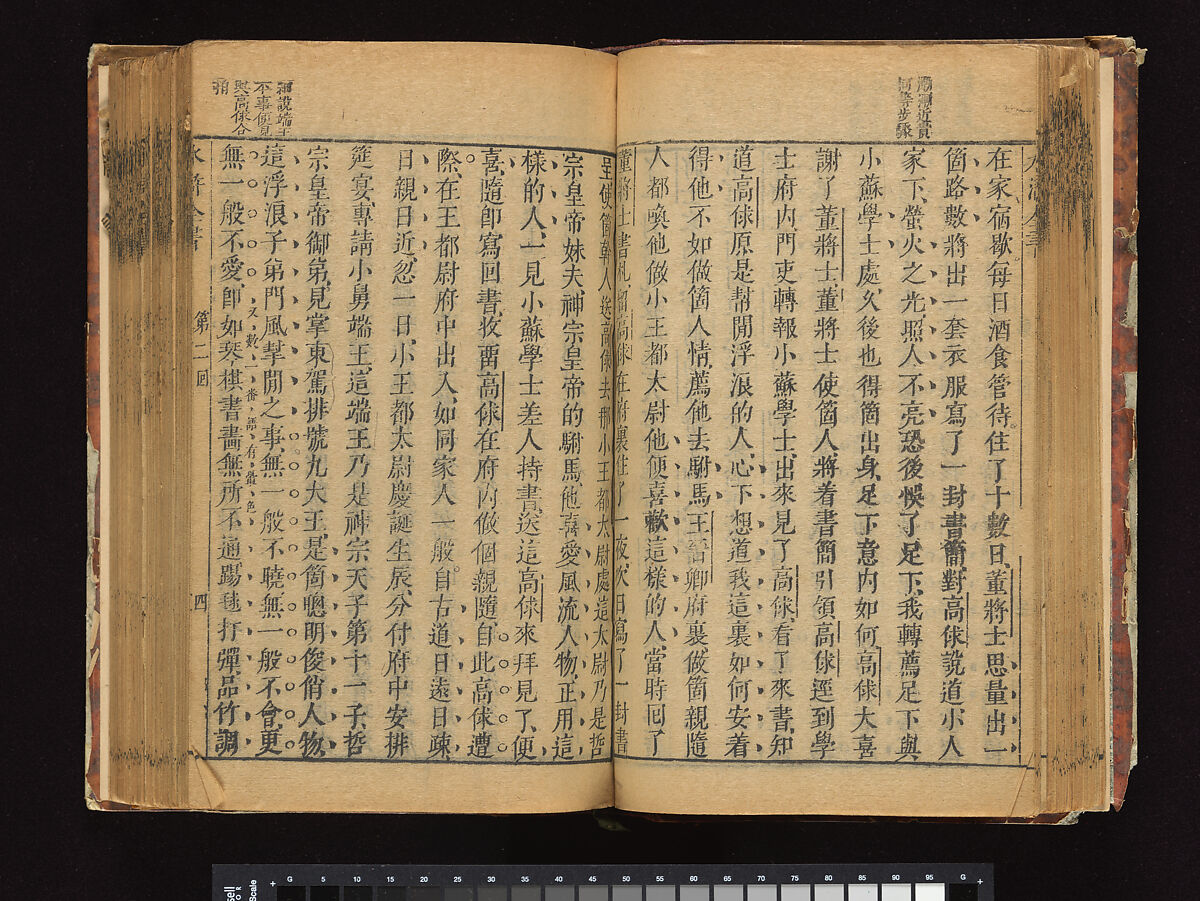 漸漸近貴
何等步驟
在家宿歇每日酒食管待住了十數日董將士思量出一
箇路數將出一套衣服寫了一封書簡對高俅說道小人
家下螢火之光照人不亮恐後悞了足下我轉薦足下與
小蘇學士處久後也得箇出身足下意內如何高俅大喜
謝了董將士董將士使箇人將着書簡引領高俅逕到學
士府內門吏轉報小蘇學士出來見了高俅看了來書知
道高俅原是幫閒浮浪的人心下想道我這裏如何安着
得他不如做箇人情薦他去駙馬王晉卿府裏做箇親隨
人都喚他做小王都太尉他便喜歡這樣的人當時回了
董將士書札留高俅在府裏住了一夜次日寫了一封書
呈使箇幹人送高俅去那小王都太尉處這太尉乃是哲
宗皇帝妹夫神宗皇帝的駙馬他喜愛風流人物正用這
樣的人一見小蘇學士差人持書送這高俅來拜見了便
喜隨即寫回書收畱高俅在府內做個親隨自此高俅遭
際在王都尉府中出入如同家人一般自古道日遠日疎
日親日近忽一日小王都太尉慶誕生辰分付府中安排
筵宴專請小舅端王這端王乃是神宗天子第十一子哲
宗皇帝御弟見掌東駕排號九大王是箇聰明俊俏人物
這浮浪子弟門風幫閒之事無一般不曉無一般不會更
又數一番語有聲色
無一般不愛即如琴棋書畫無所不通踢毬打彈品竹調
細說端王
不事便見
與高俅合
拍
水滸全書
第二回
四